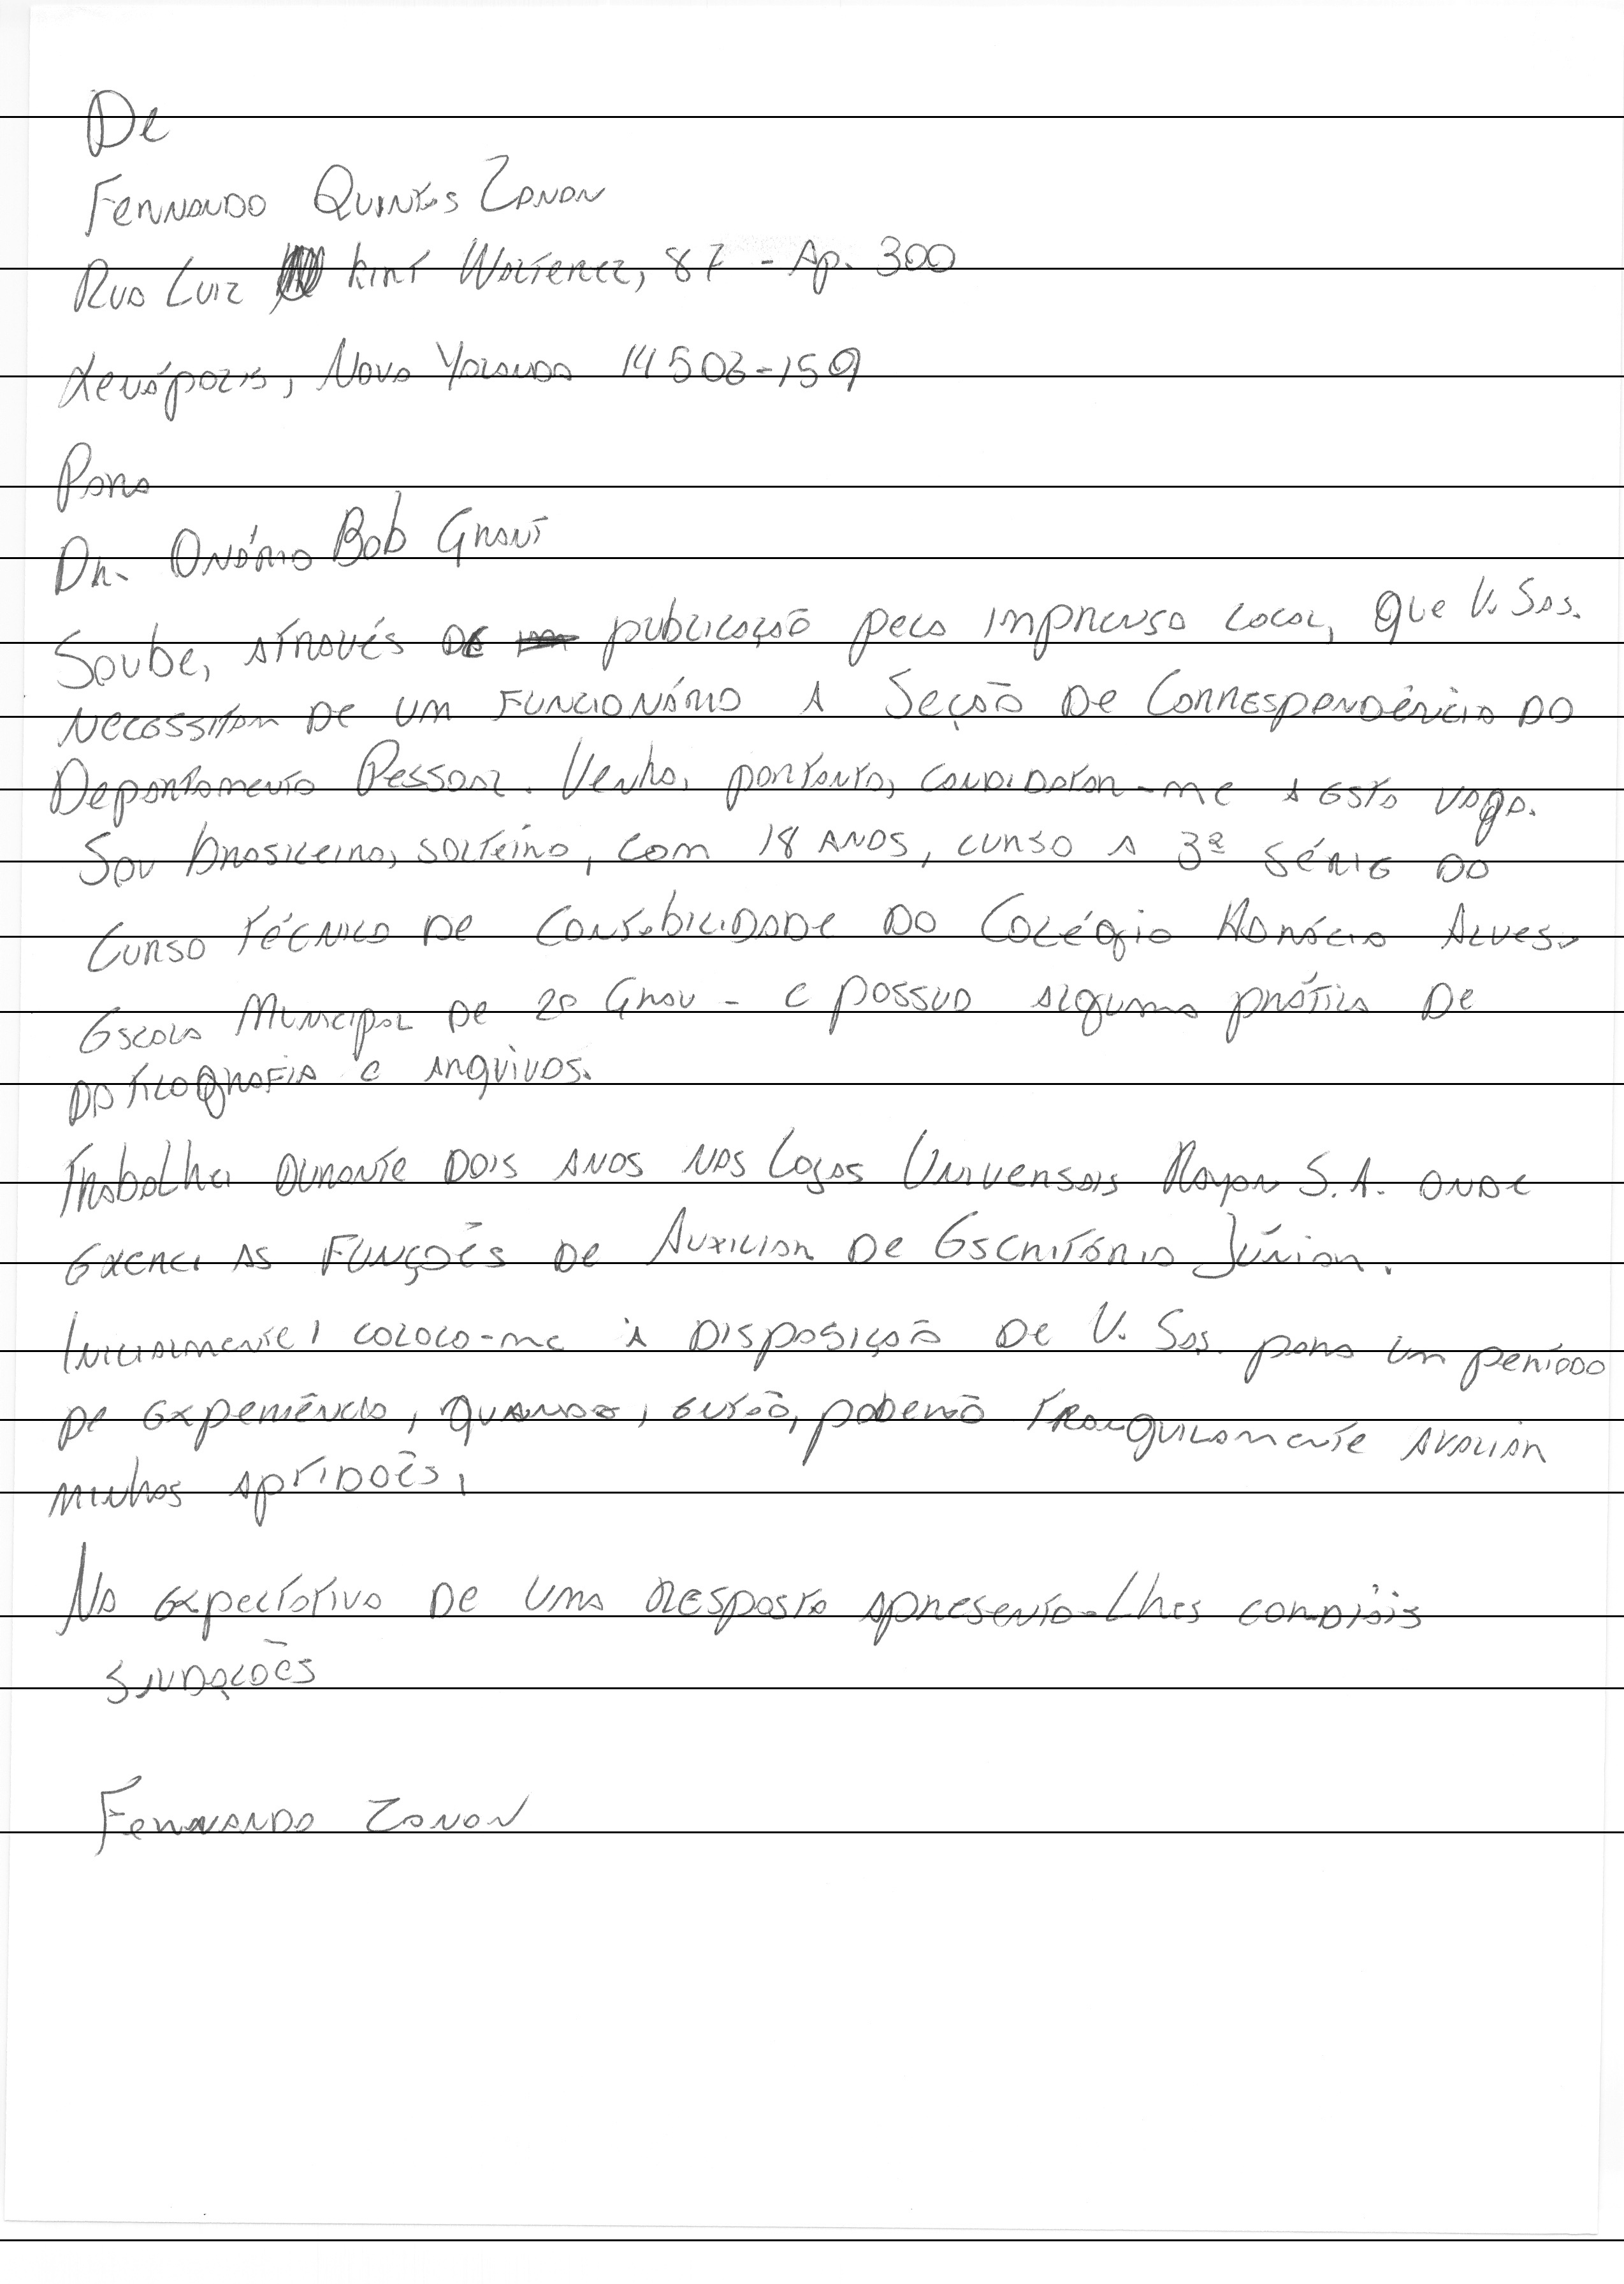 De
Fernando Quintes Zanon
Rua Luiz Kint Walterez, 87 - Ap. 300
Xenópolis, Nova Yolanda 14503-159
Para
Dr. Onório Bob Grant
Soube, através de publicação pela imprensa local, que V. Sas.
necessitam de um funcionário a Seção de Correspondência do
Departamento Pessoal. Venho, portanto, candidatar-me a esta vaga.
Sou brasileiro, solteiro, com 18 anos, curso a 3ª série do
Curso técnico de Contabilidade do Colégio Honácio Alves -
Escola Municipal de 2º Grau - e possuo alguma prática de
datilografia e arquivos.
Trabalhei durante dois anos nas Lojas Universais Rayon S.A. onde
exerci as funções de Auxiliar de Escritório Júnior.
Inicialmente, coloco-me à disposição de V. Sas. para um período
de experiência, quando, então, poderão tranquilamente avaliar
minhas aptidões,
Na expectativa de uma resposta apresento-lhes cordiais
saudações
Fernando Zanon